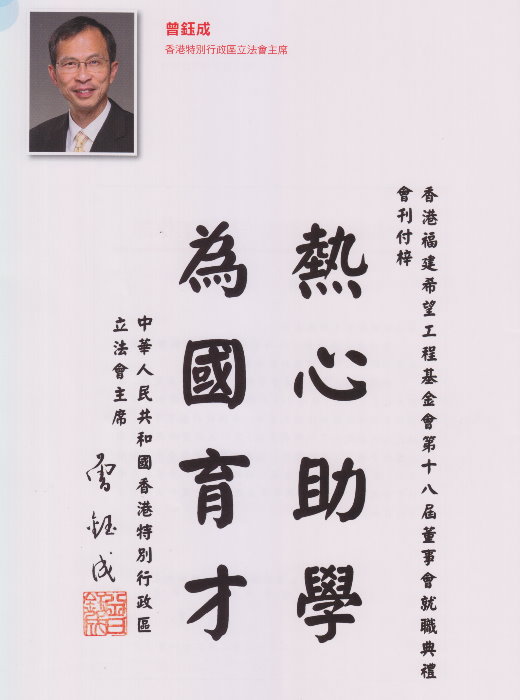 曾鈺成
香港特別行政區立法會主席
香港福建希望工程基金會第十八屆董事會就職典禮
會刊付梓
熱心助學
為國育才
中華人民共和國香港特別行政區
立法會主席
曾鈺成